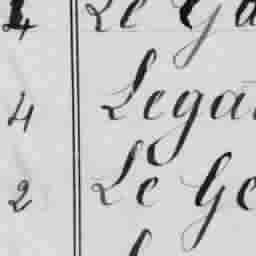 4 Le Ga
4 Lega
2 Le Ge